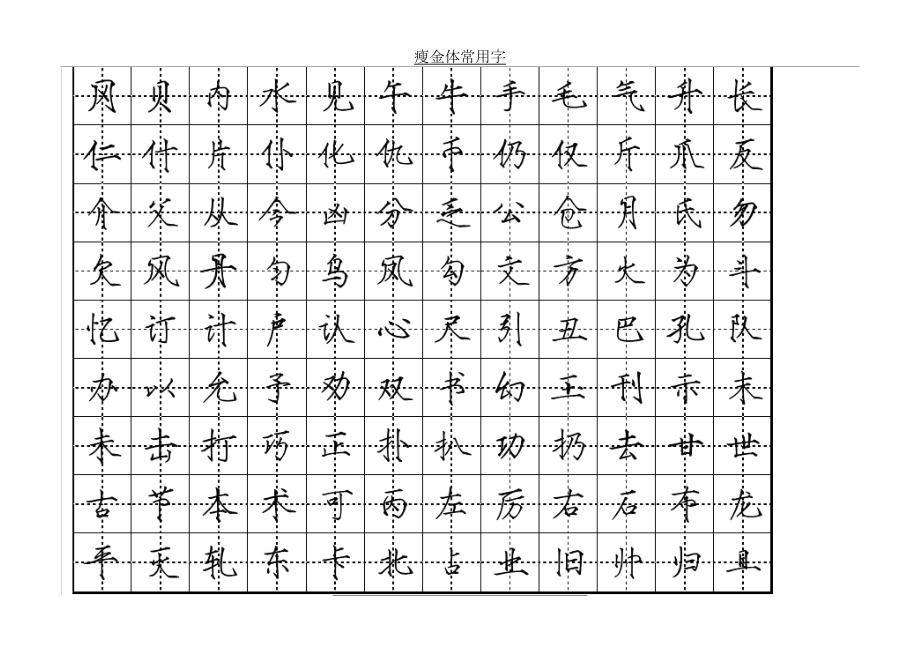 瘦金体常用字
冈贝内水见午牛手毛气升长
仁什片仆化仇币仍仅斤爪反
介父从今凶分乏公仓月氏勿
欠风丹匀乌凤勾文方火为斗
忆订计户认心尺引丑巴孔队
办以允予劝双书幻玉刊示末
未击打巧正扑扒功扔去甘世
古节本术可丙左厉右石布龙
平灭轧东卡北占业旧帅归且